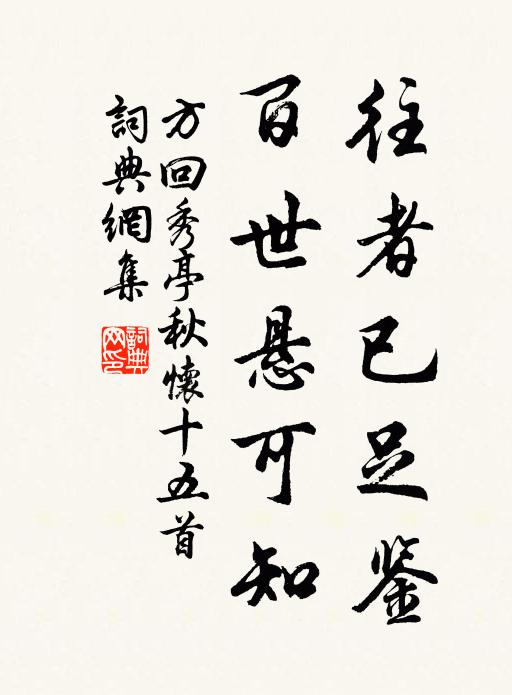 往者已足鉴
百世悬可知
方回秀亭秋懷十五首
詞典網集
詞典网印